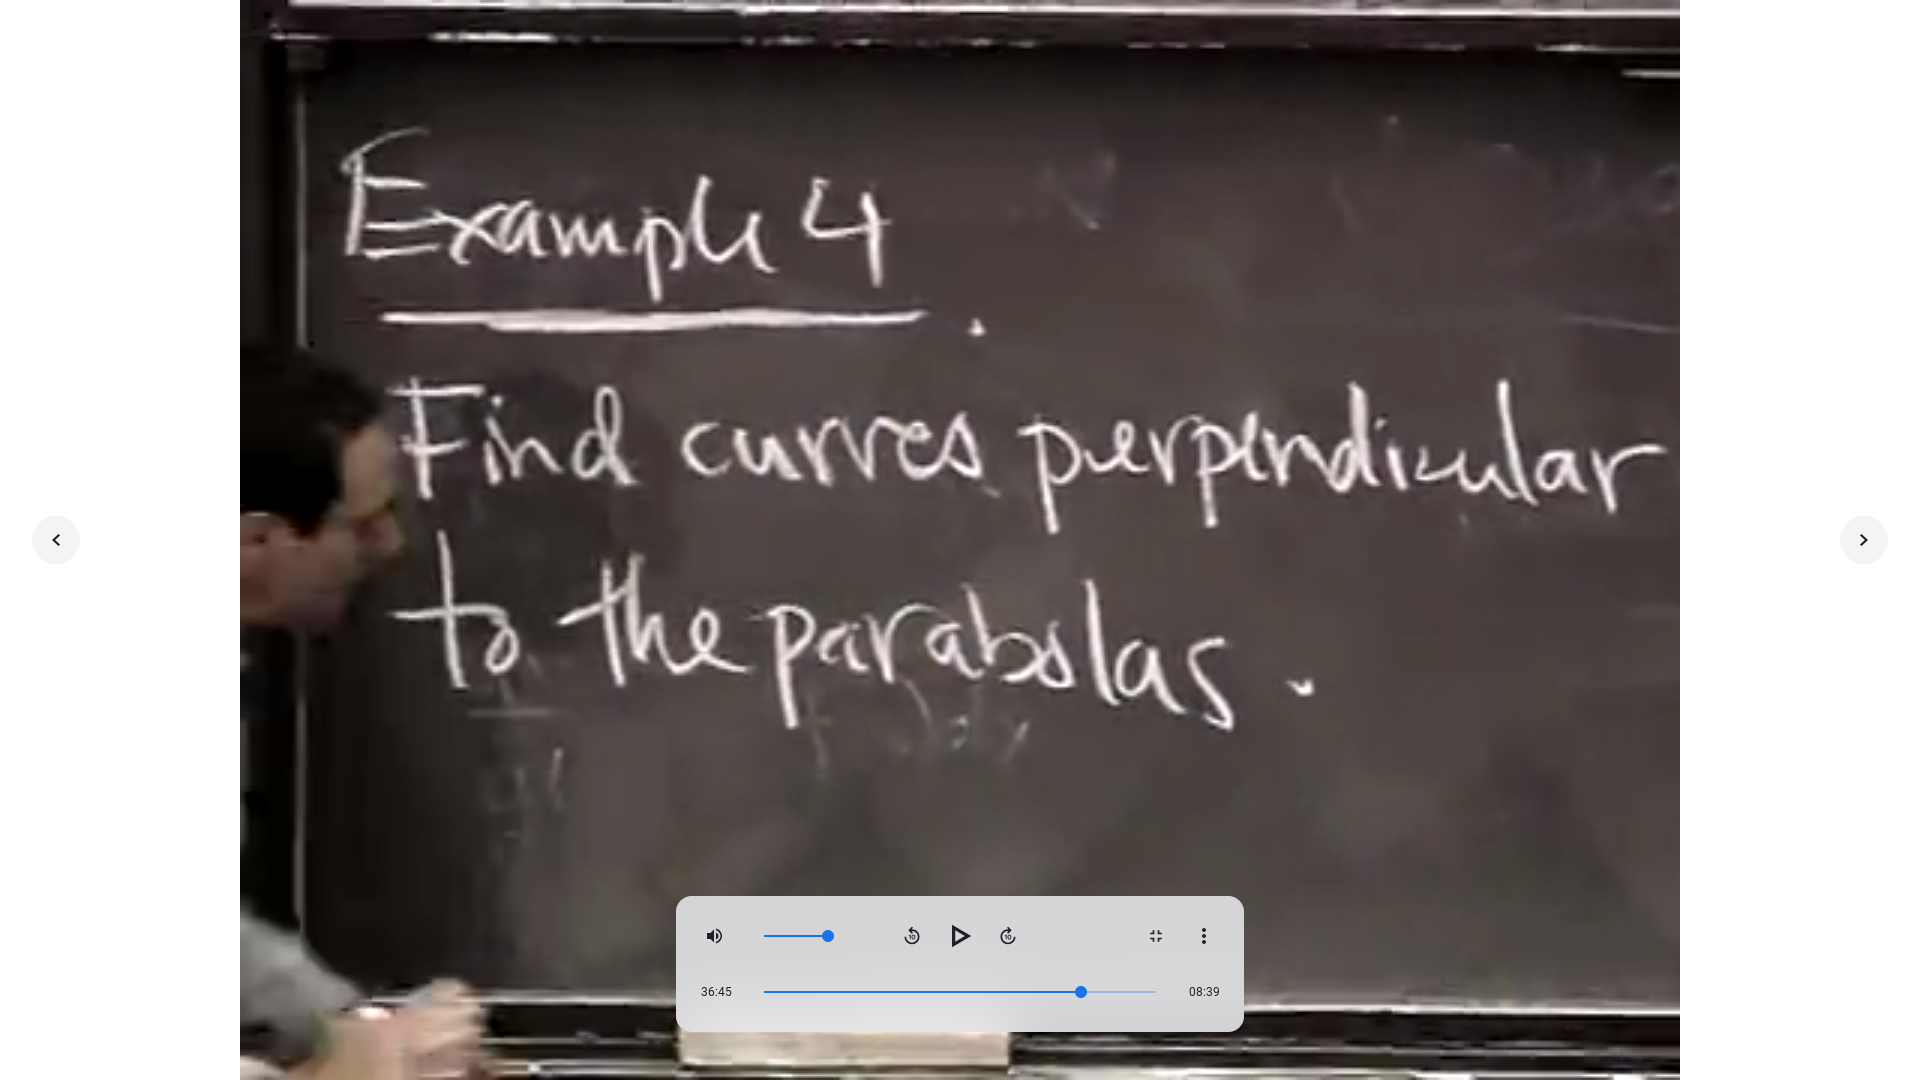 Example 4.
Find curves perpendicular
to the parabolas.
10
10
36:45
08:39